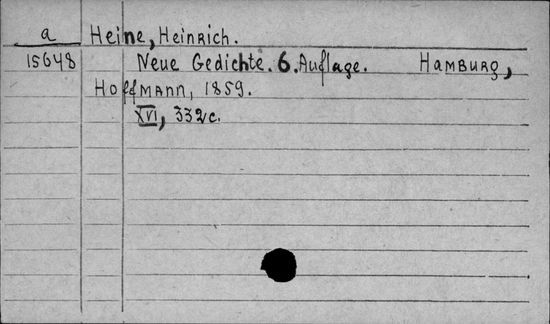 a Heine, Heinrich.
15648 Neue Gedichte. 6. Auflage. Hamburg,
Hoffmann, 1859.
XVI, 332 c.